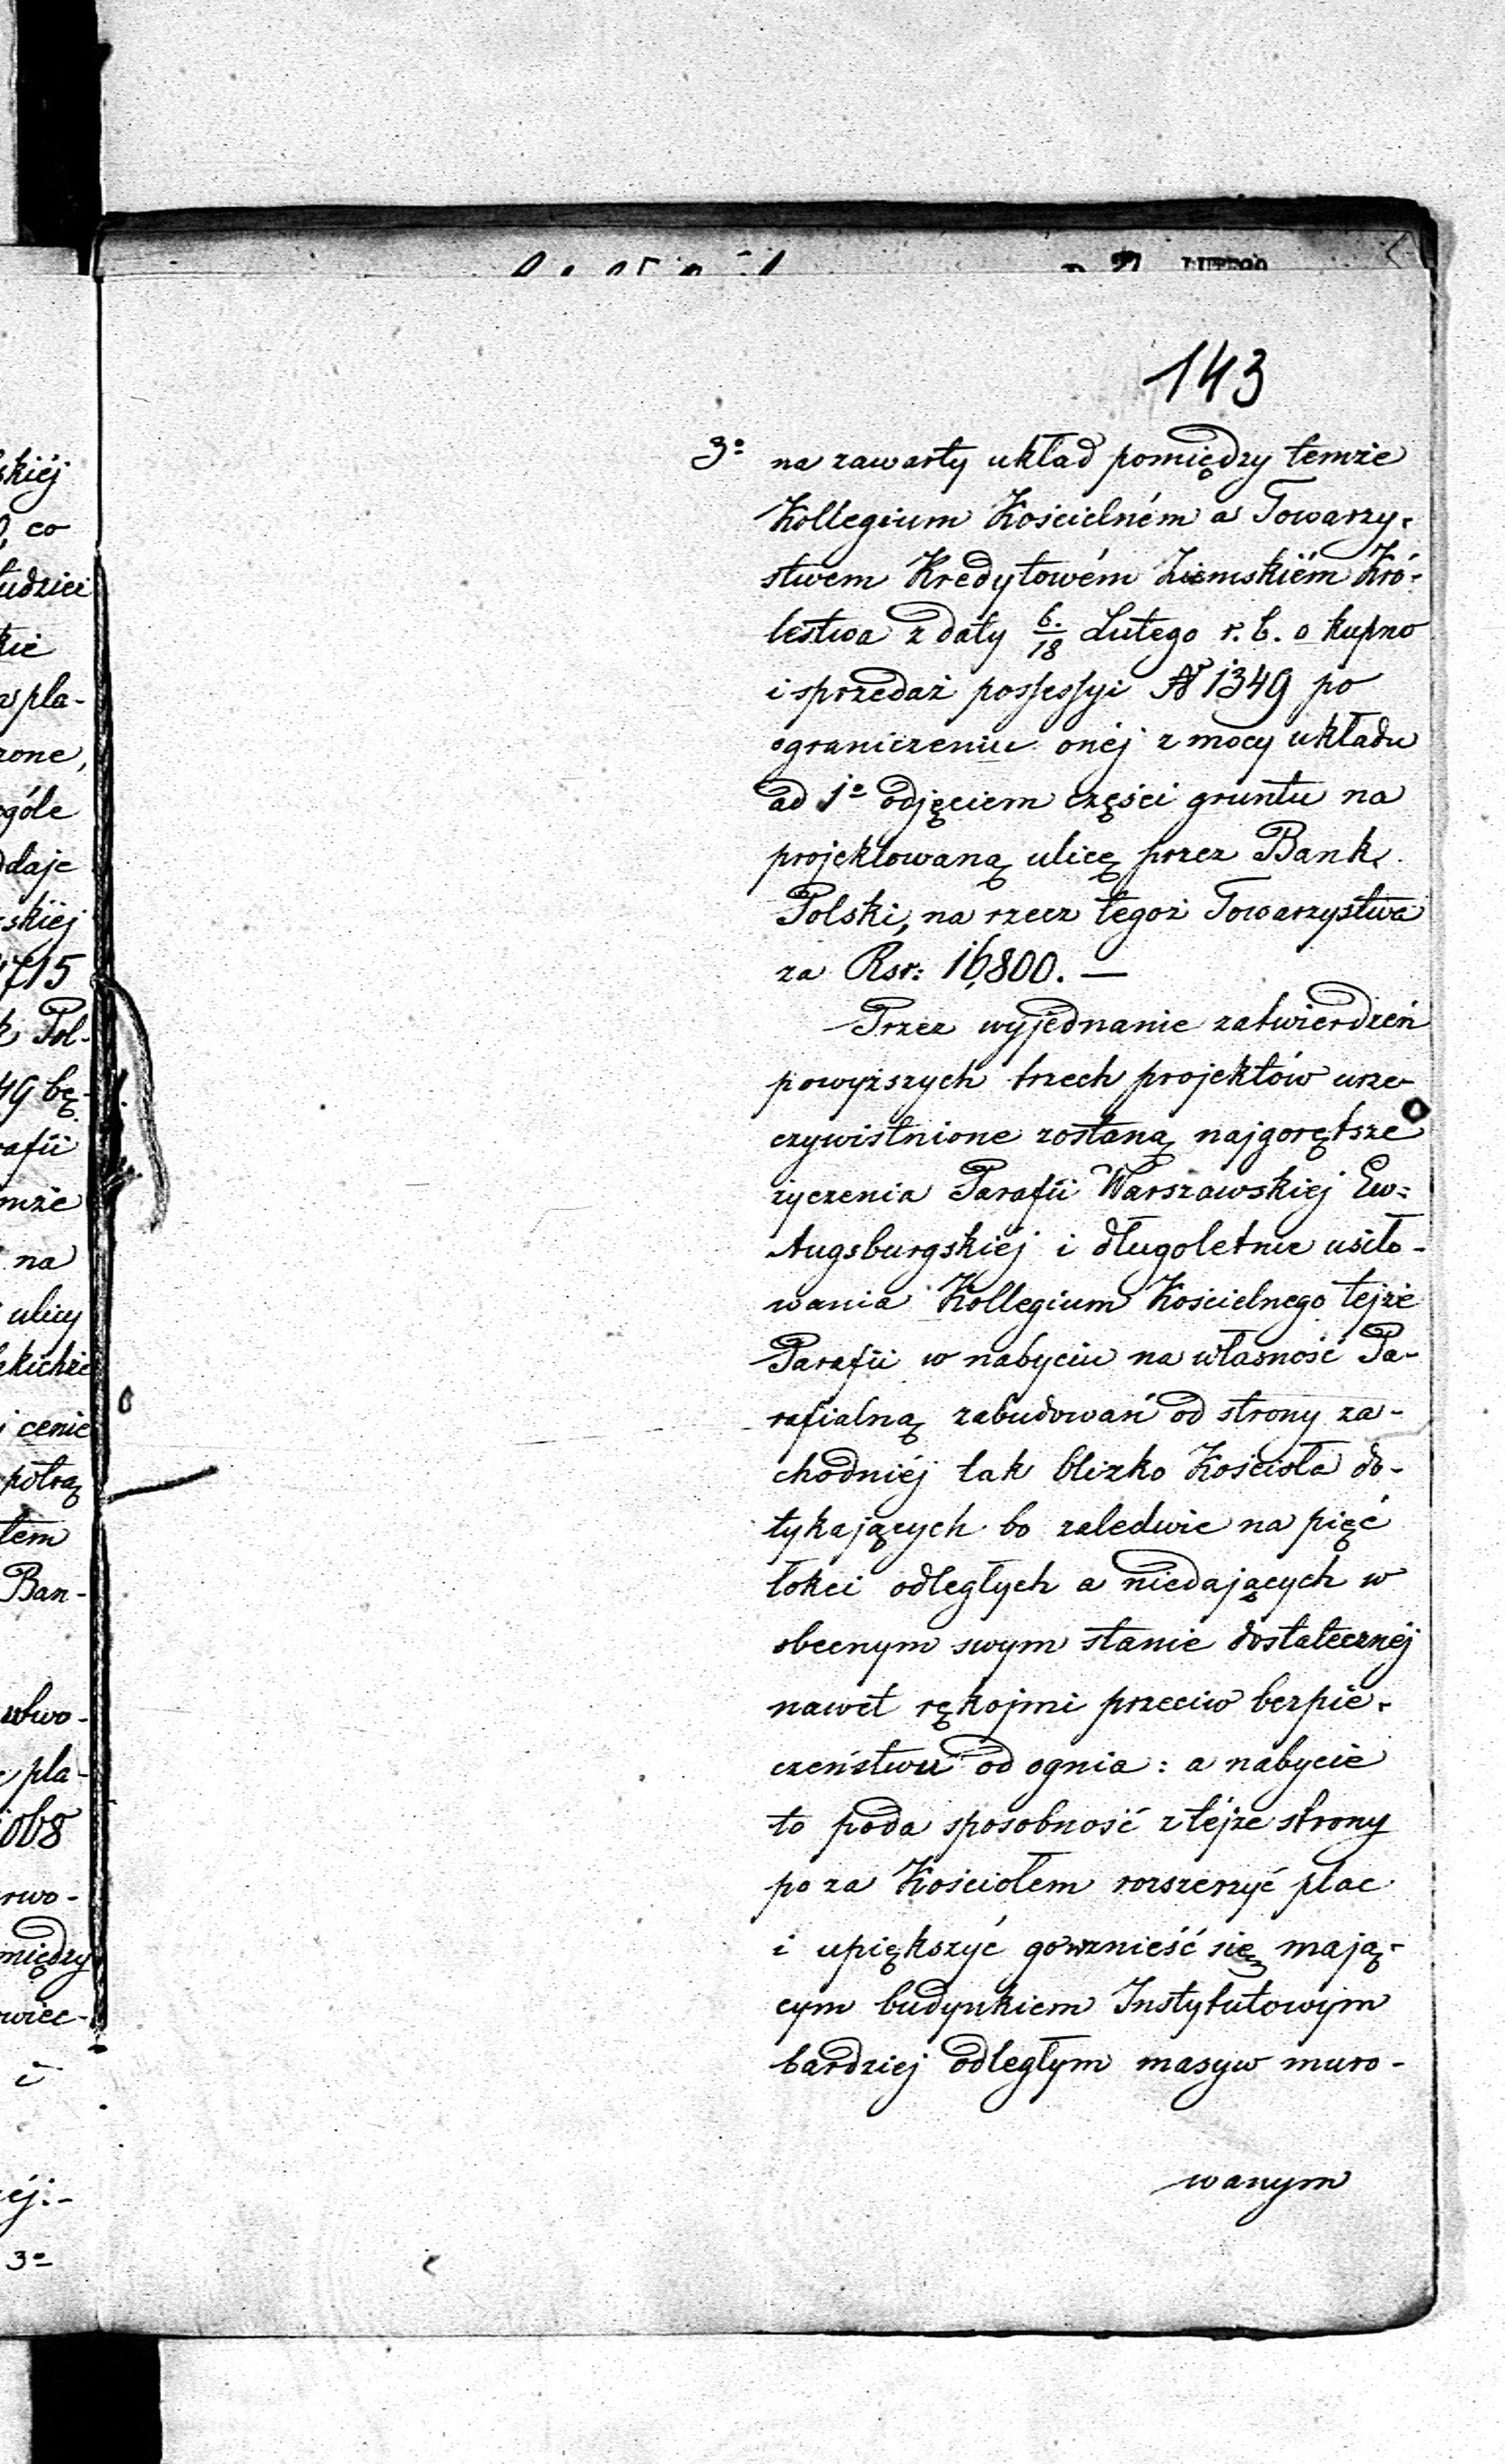 143
3º na zawarty układ pomiędzy temże
Kollegium Kościelném a Towarzy-
stwem Kredytowém Ziemskiém Kró-
lestwa z daty 6/18 Lutego r. b. o kupno
i sprzedaż possessyi № 1349 po
ograniczeniu onéj z mocy układu
ad 1º odjęciem części gruntu na
projektowaną ulicę przez Bank
Polski, na rzecz tegoż Towarzystwa
za Rsr: 16,800. —
Przez wyjednanie zatwierdzeń
powyższych trzech projektów urze-
czywistnione zostaną najgorętsze
życzenia Parafii Warszawskiej Ew:
Augsburgskiéj i długoletnie usiło-
wania Kollegium Kościelnego tejże
Parafii w nabyciu na własność Pa-
rafialną zabudowań od strony za-
chodniéj tak blizko Kościoła do-
tykających bo zaledwie na pięć
łokci odległych a niedających w
obecnym swym stanie dostatecznéj
nawet rękojmi przeciw bezpie-
czeństwu od ognia: a nabycie
to poda sposobność z téjże strony
po za Kościołem rozszerzyć plac
i upiększyć go wznieść się mają-
cym budynkiem Instytutowym
bardziej odległym masyw muro-
wanym
skiéj
co
tudzież
kie
pla-
zone,
ogóle
ddaje
skiéj
4715
Pol-
49 bę-
rafii
mże
na
ulicy
cenie
potrą
tem
Ban-
utwo-
pla-
1068
rwo-
między
owiec-
i
éj:-
3º